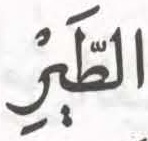 الطَّيْرِ